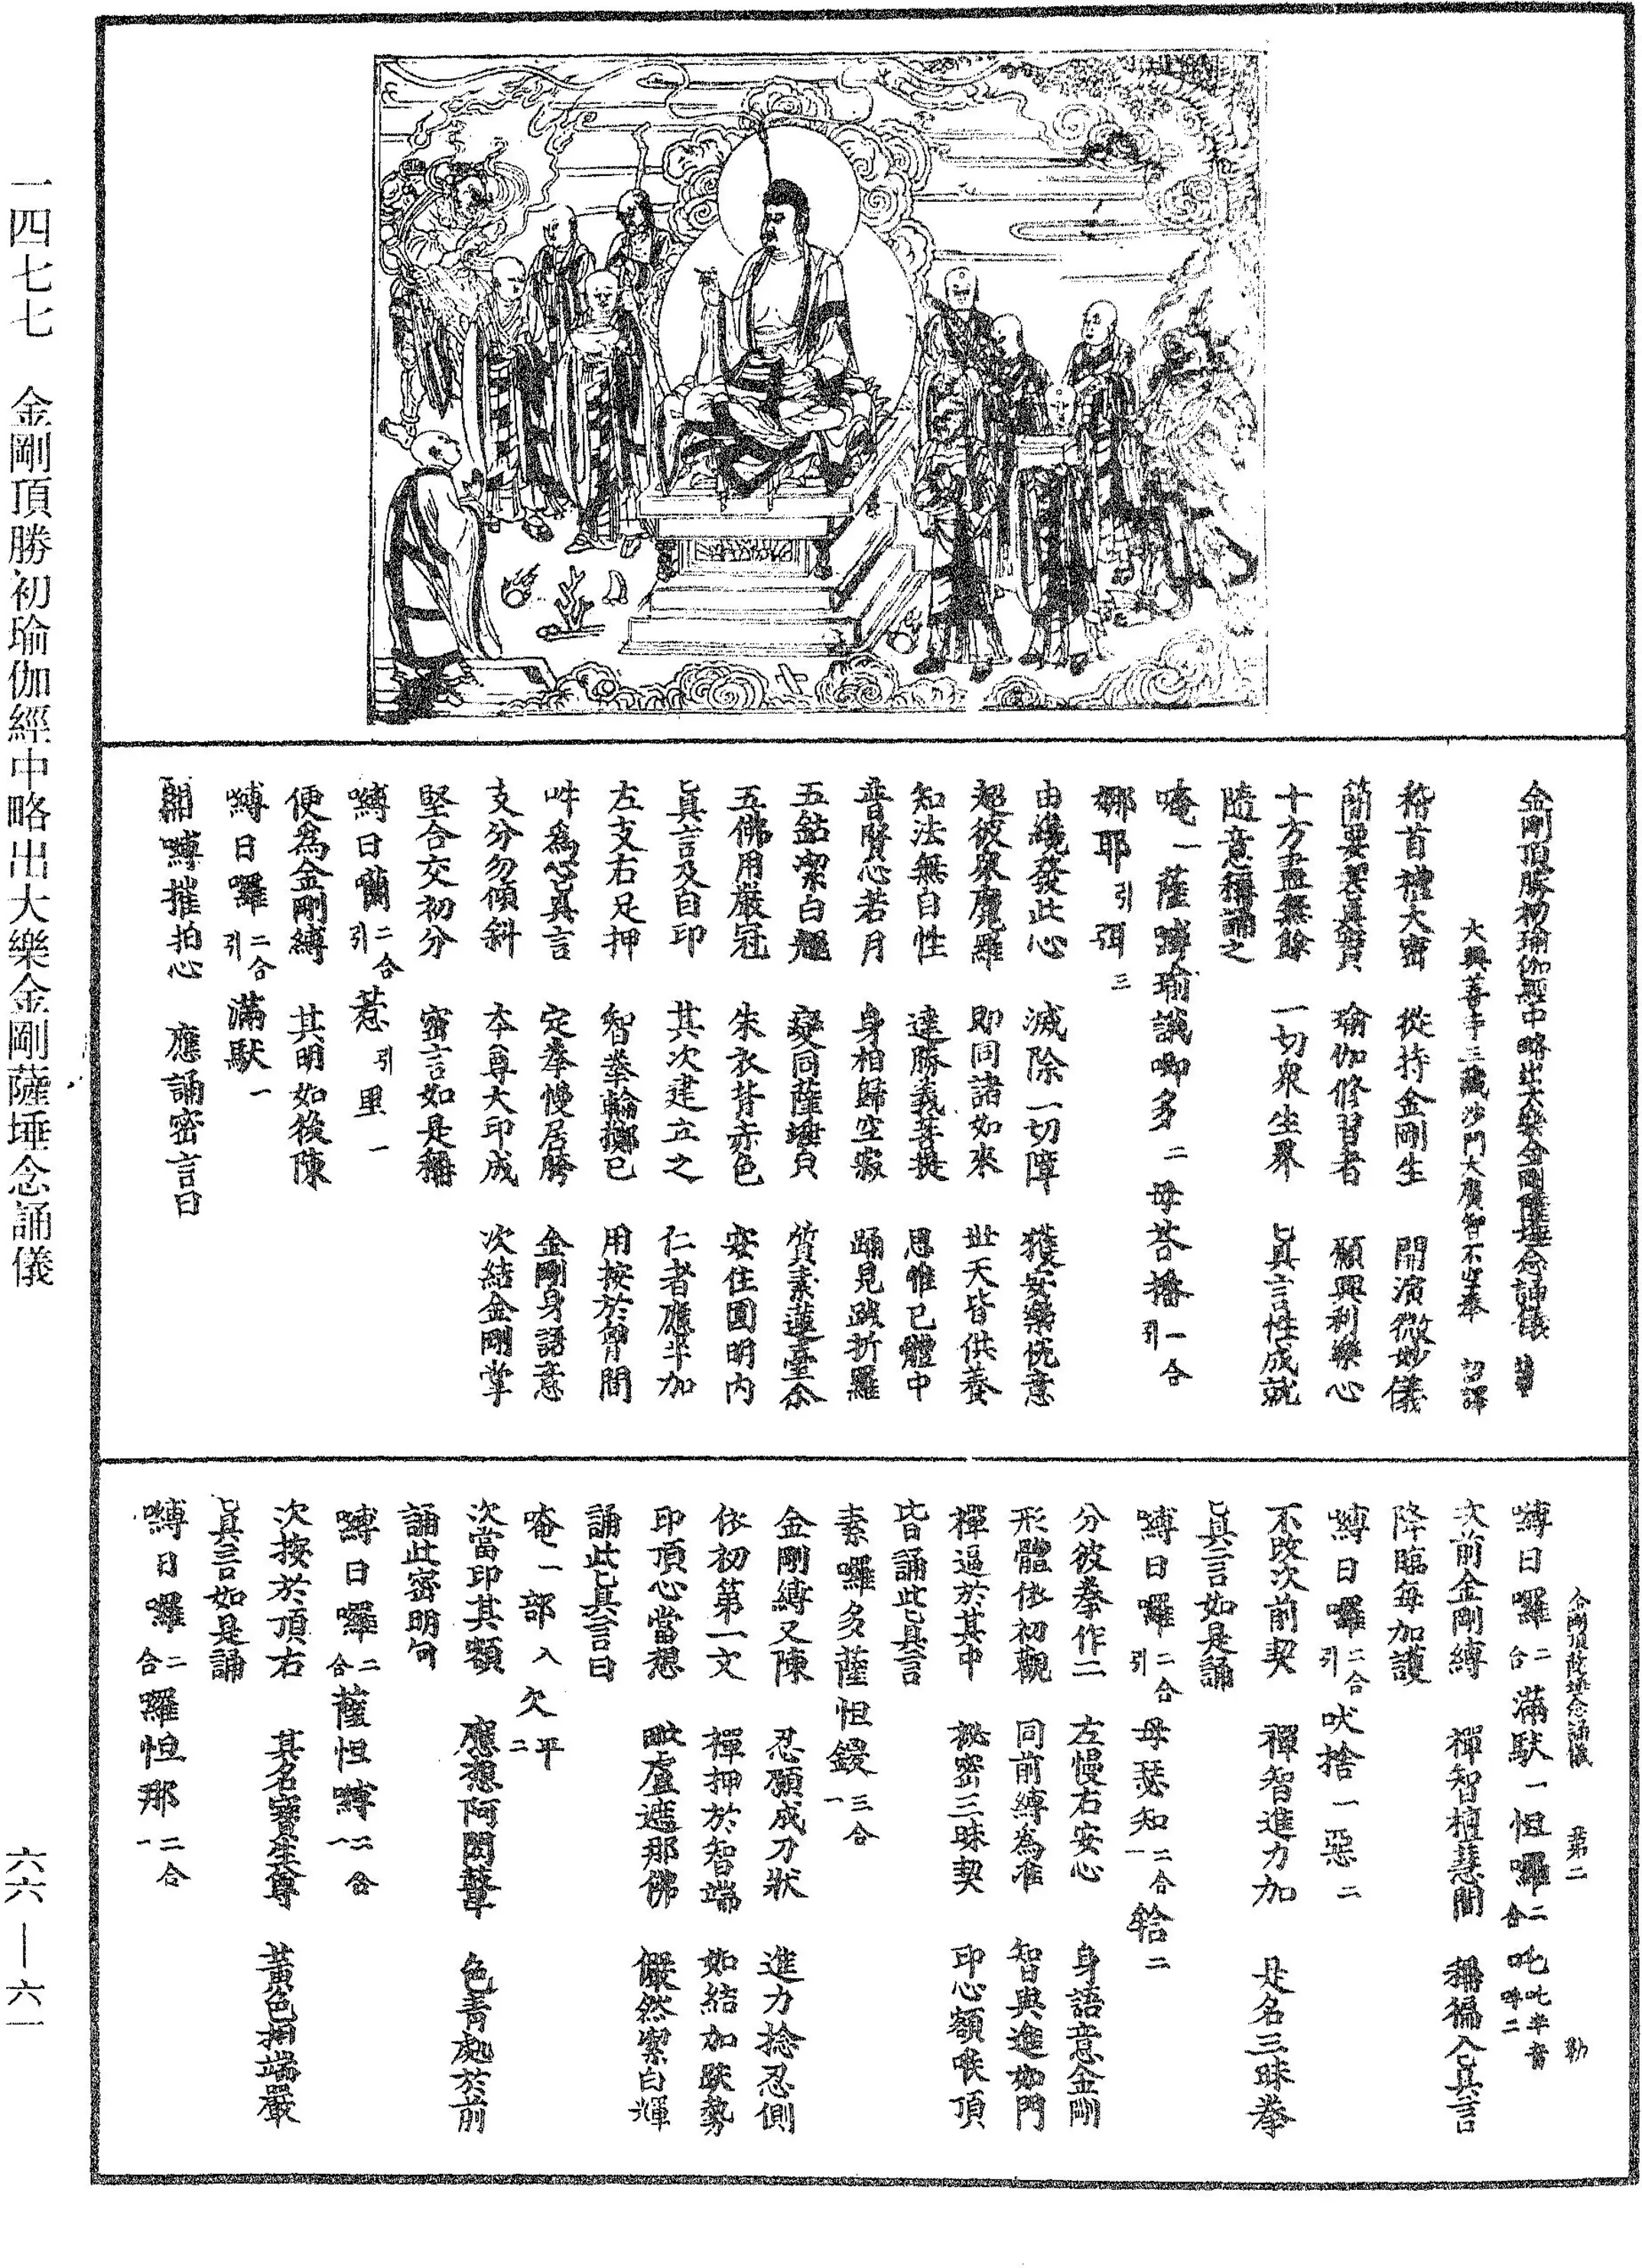 一四七七　金剛頂勝初瑜伽經中略出大樂金剛薩埵念誦儀
六六—六一
金剛頂勝初瑜伽經中略出大樂金剛薩埵念誦儀
大興善寺三藏沙門大廣智不空奉　詔譯
稽首禮大密　從持金剛生　開演微妙儀
簡要最真實　瑜伽修習者　願興利樂心
十方盡無餘　一切眾生界　真言性成就
隨意稱誦之
唵一薩嚩瑜誐唧多二母荅播二合引
娜耶引弭三
由纔發此心　滅除一切障　獲安樂悅意
超彼眾魔羅　即同諸如來　世天皆供養
知法無自性　達勝義菩提　思惟已體中
普賢心若月　身相歸空寂　踊見跋折羅
五鈷潔白光　變同薩埵身　質素蓮臺合
五佛用嚴冠　朱衣背赤色　安住圓明內
真言及自印　其次建立之　仁者應半加
左支右足押　智拳輪擲已　用按於胷間
吽為心真言　定拳慢居胯　金剛身語意
支分勿傾斜　本尊大印成　次結金剛掌
堅合交初分　密言如是稱
嚩日囒二合引惹引里一
便為金剛縛　其明如後陳
嚩日囉二合引滿馱一
開縛摧拍心　應誦密言曰
金剛頂薩埵念誦儀　第二　勒
嚩日囉二合滿馱一怛囉二合吒吒半音呼二
次前金剛縛　禪智檀慧間　稱徧入真言
降臨每加護
嚩日囉二合引吠捨一惡二
不改次前契　禪智進力加　是名三昧拳
真言如是誦
嚩日囉二合引母瑟知二合一鋡二
分彼拳作二　左慢右安心　身語意金剛
形體依初觀　同前縛為准　智與進如門
禪逼於其中　祕密三昧契　印心額喉頂
皆誦此真言
素囉多薩怛鑁三合一
金剛縛又陳　忍願成刀狀　進力捻忍側
依初第一文　禪押於智端　如結加趺勢
印頂心當想　毗盧遮那佛　儼然潔白輝
誦此真言曰
唵一部入欠平二
次當印其額　應想阿閦鞞　色青處於前
誦此密明句
嚩日囉二合薩怛嚩二合一
次按於頂右　其名寶生尊　黃色相端嚴
真言如是誦
嚩日囉二合羅怛那二合一